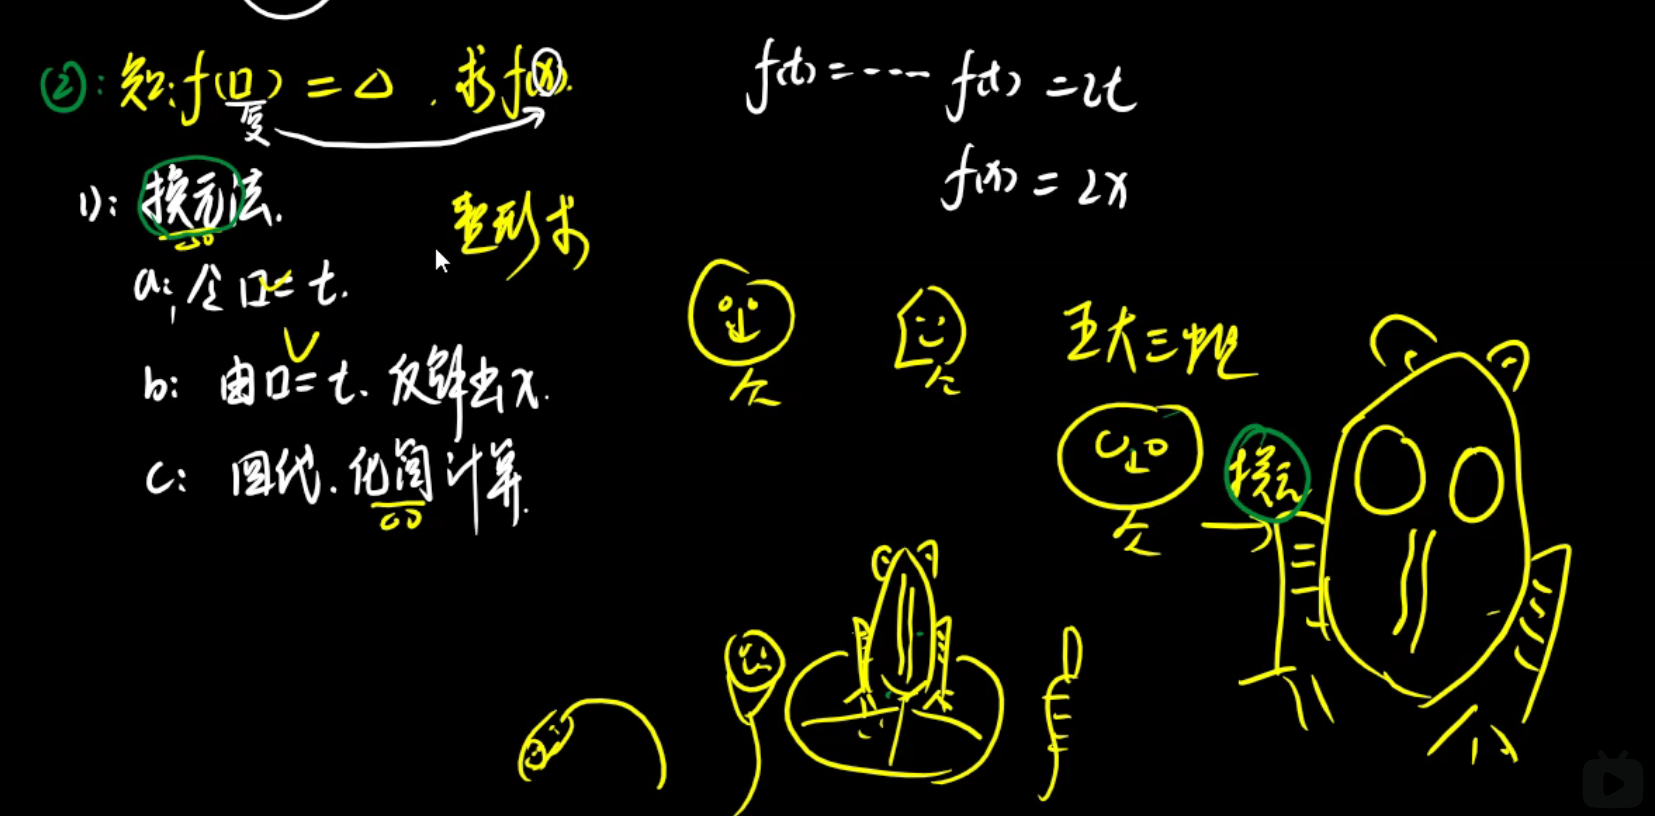 ②: 知: f(口) = △ . 求 f(x).
复
f(t) = ---- f(t) = 2t
f(x) = 2x
1): 换元法.
整形术
a: 令口= t.
b: 由口= t. 反解出x.
c: 回代. 化简计算.
换元